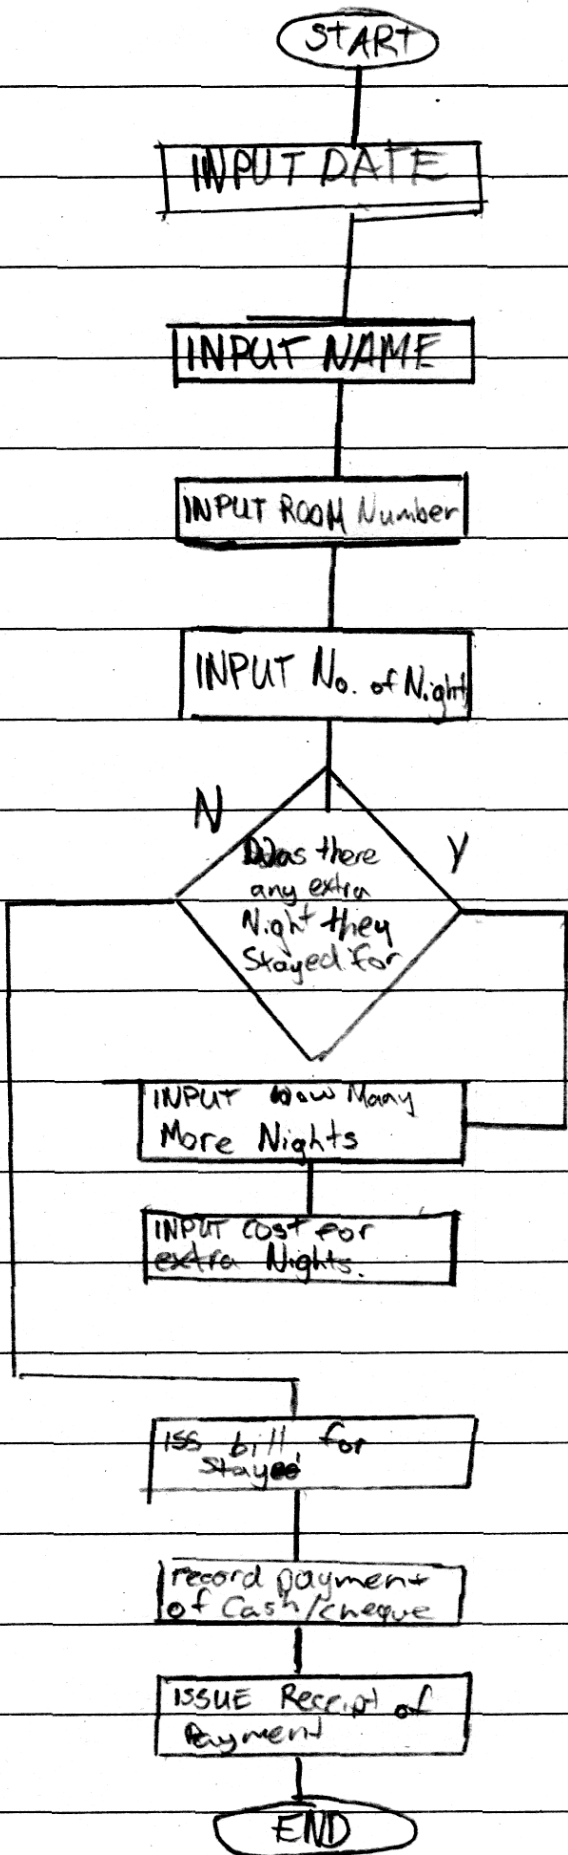 START
INPUT DATE
INPUT NAME
INPUT ROOM Number
INPUT No. of Night
N
Y
Was there
any extra
Night they
Stayed for
INPUT How Many
More Nights
INPUT cost for
extra Nights.
ISS bill for
Stayed
record payment
of Cash/cheque
ISSUE Receipt of
Payment
END